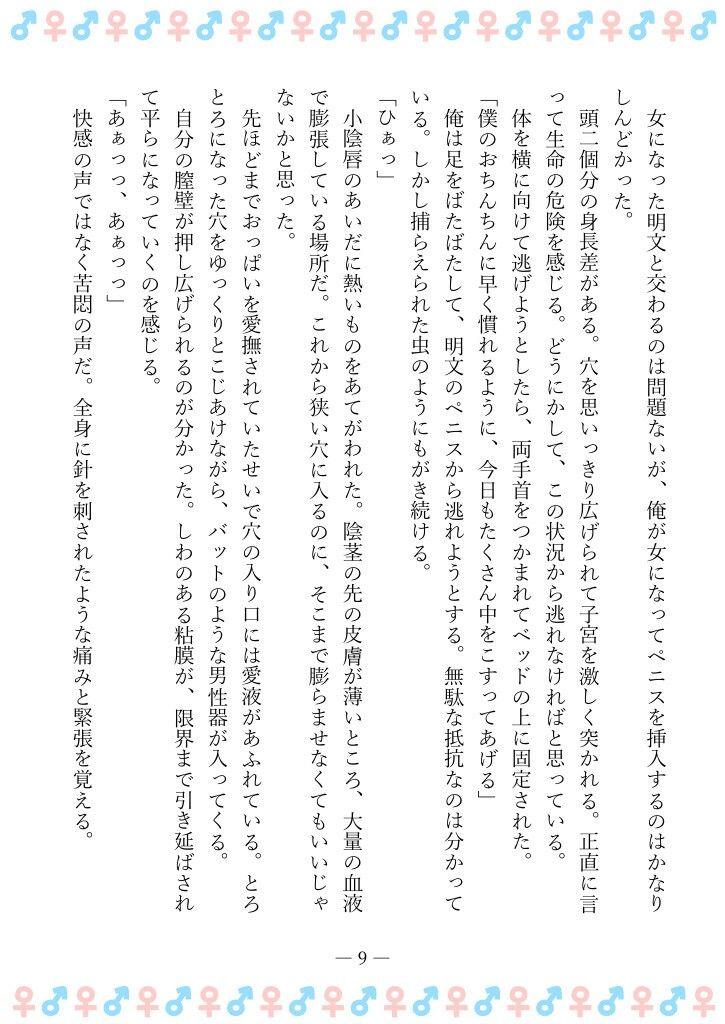 女になった明文と交わるのは問題ないが、俺が女になってペニスを挿入するのはかなり
しんどかった。
頭二個分の身長差がある。穴を思いっきり広げられて子宮を激しく突かれる。正直に言
って生命の危険を感じる。どうにかして、この状況から逃れなければと思っている。
体を横に向けて逃げようとしたら、両手首をつかまれてベッドの上に固定された。
「僕のおちんちんに早く慣れるように、今日もたくさん中をこすってあげる」
俺は足をばたばたして、明文のペニスから逃れようとする。無駄な抵抗なのは分かって
いる。しかし捕らえられた虫のようにもがき続ける。
「ひぁっ」
小陰唇のあいだに熱いものをあてがわれた。陰茎の先の皮膚が薄いところ、大量の血液
で膨張している場所だ。これから狭い穴に入るのに、そこまで膨らませなくてもいいじゃ
ないかと思った。
先ほどまでおっぱいを愛撫されていたせいで穴の入り口には愛液があふれている。とろ
とろになった穴をゆっくりとこじあけながら、バットのような男性器が入ってくる。
自分の膣壁が押し広げられるのが分かった。しわのある粘膜が、限界まで引き延ばされ
て平らになっていくのを感じる。
「あぁっっ、あぁっっ」
快感の声ではなく苦悶の声だ。全身に針を刺されたような痛みと緊張を覚える。
― 9 ―